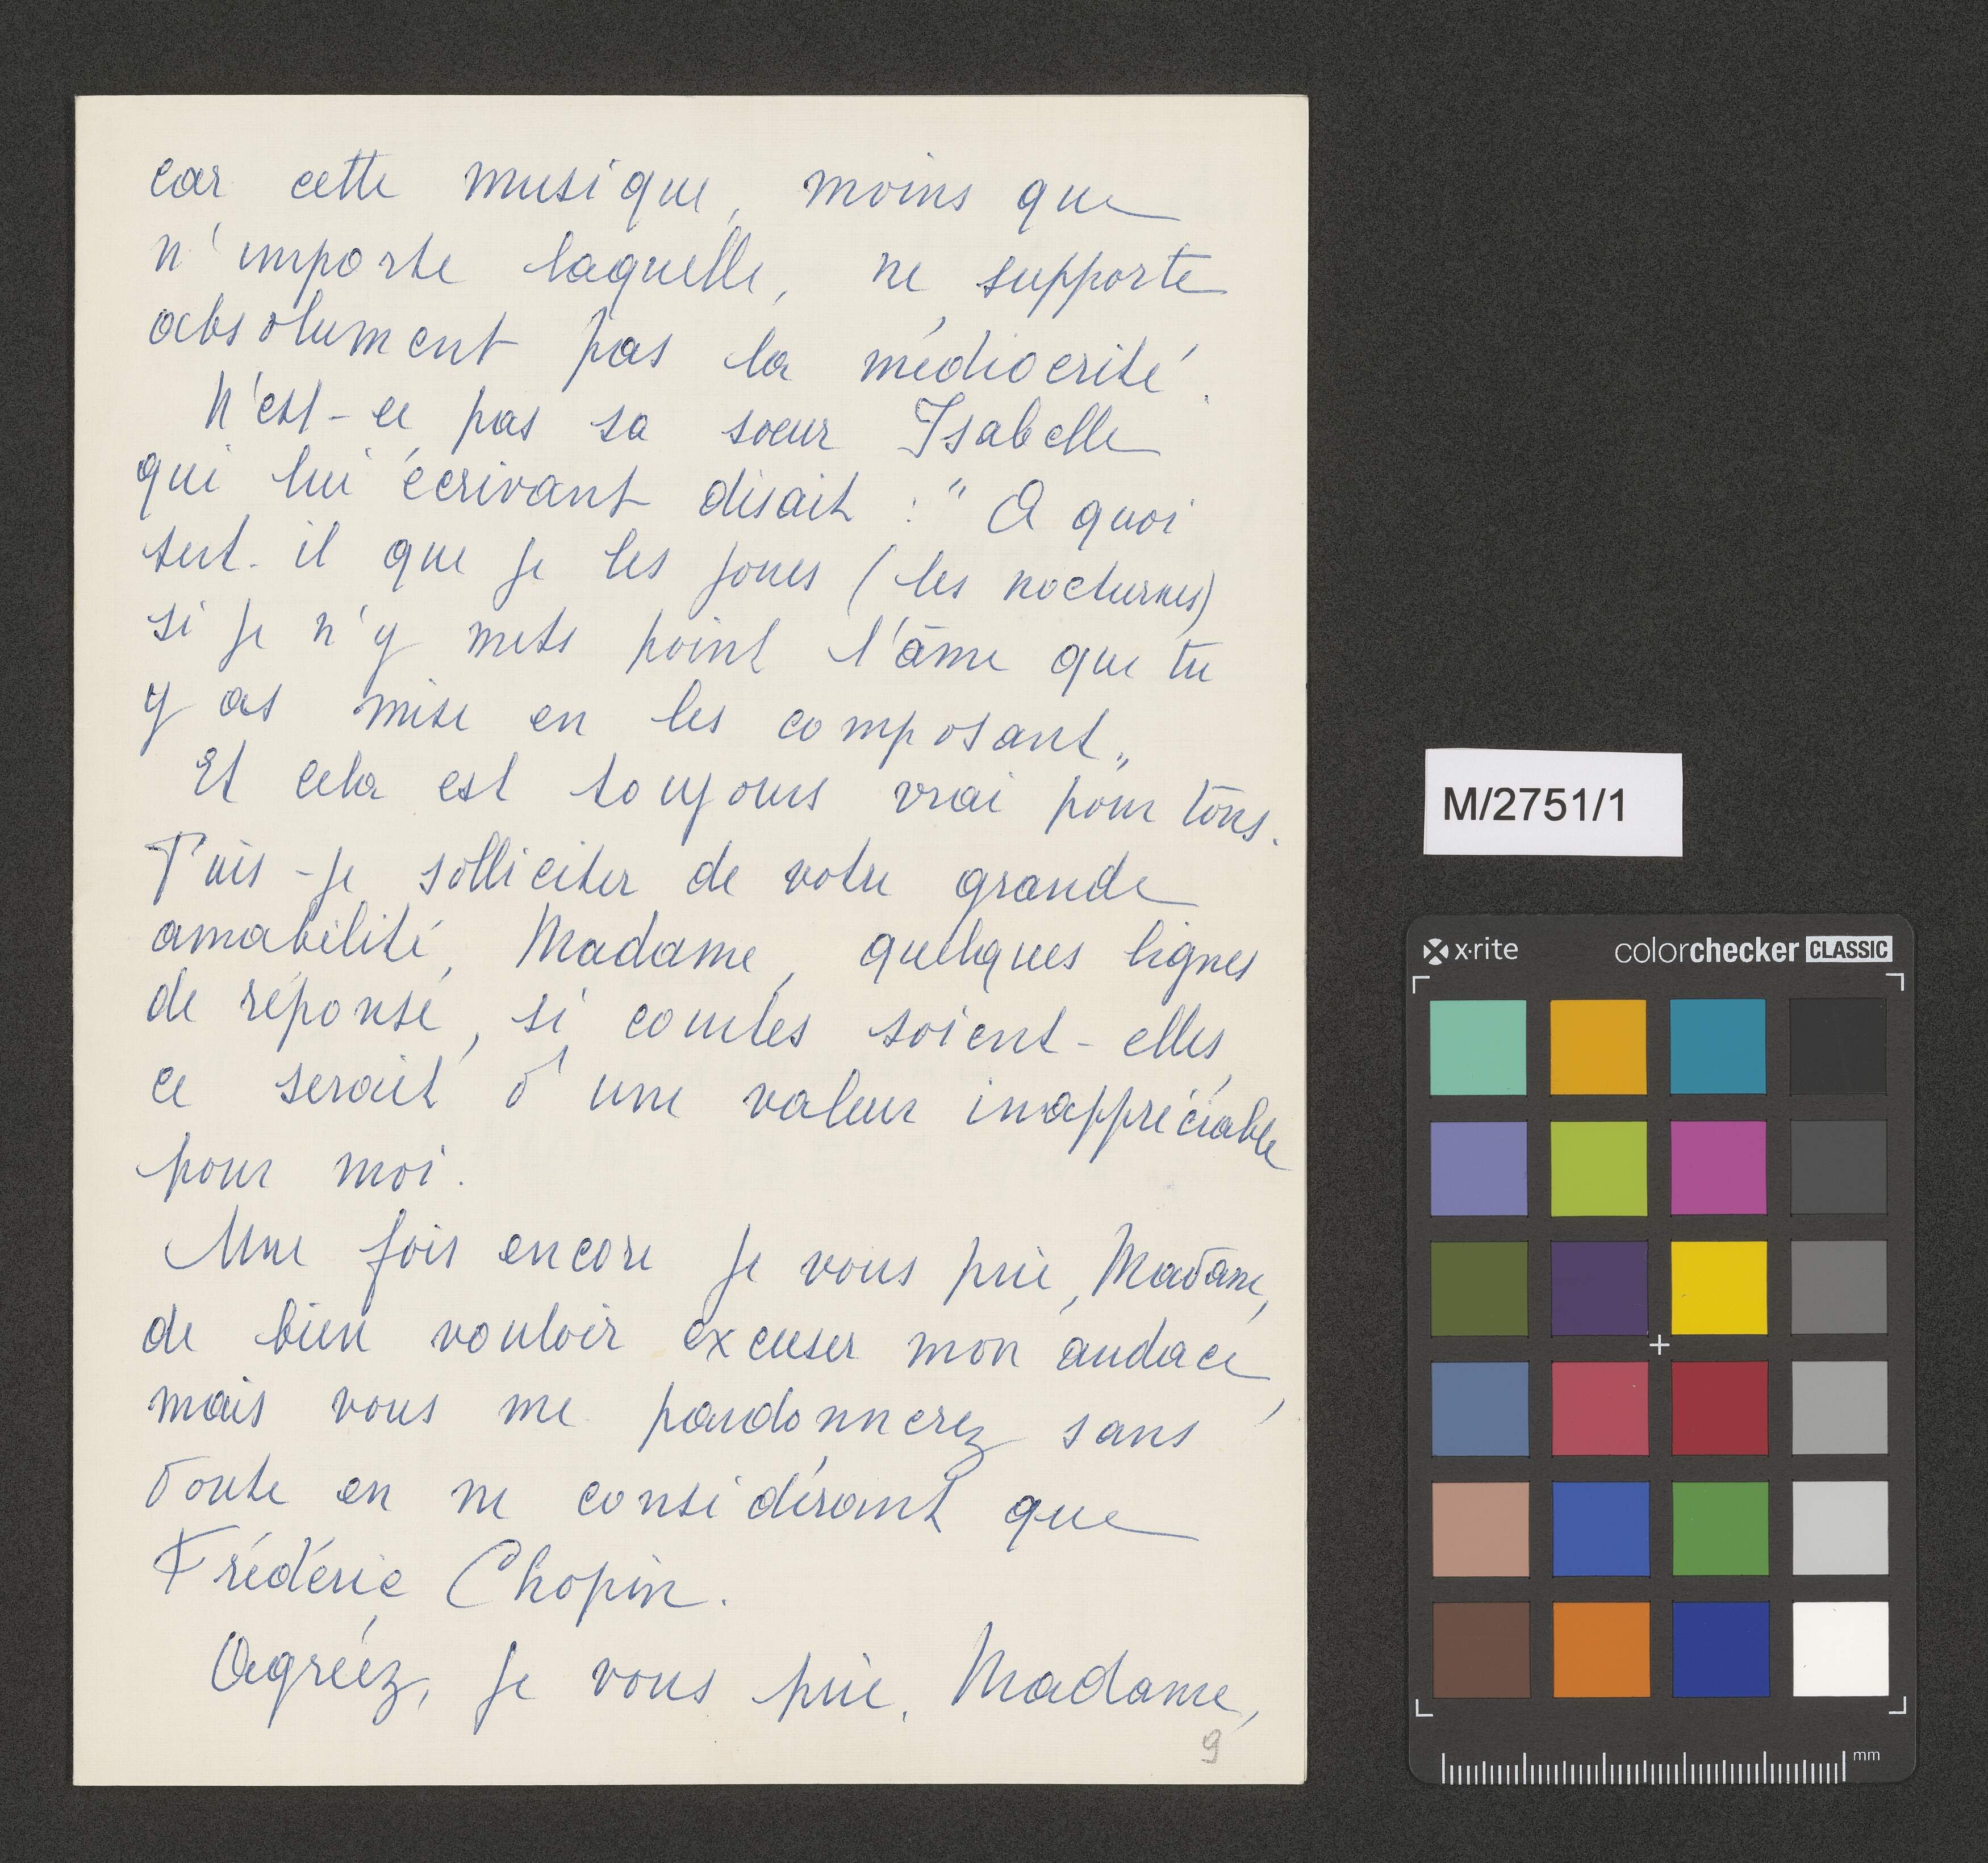 car cette musique, moins que
n'importe laquelle, ne supporte
absolument pas la médiocrité.
N'est-ce pas sa soeur Isabelle
qui lui écrivant disait : " A quoi
sert-il que je les joues (les nocturnes)
si je n'y mets point l'âme que tu
y as mise en les composant„
Et cela est toujours vrai pour tous.
Puis-je solliciter de votre grande
amabilité, Madame, quelques lignes
de réponse, si courtes soient-elles,
ce serait d'une valeur inappréciable
pour moi.
Une fois encore je vous prie, Madame,
de bien vouloir excuser mon audace,
mais vous me pardonnerez sans
doute en ne considérant que
Frédéric Chopin.
Agréez, je vous prie, Madame,
9
M/2751/1
x·rite colorchecker CLASSIC
mm